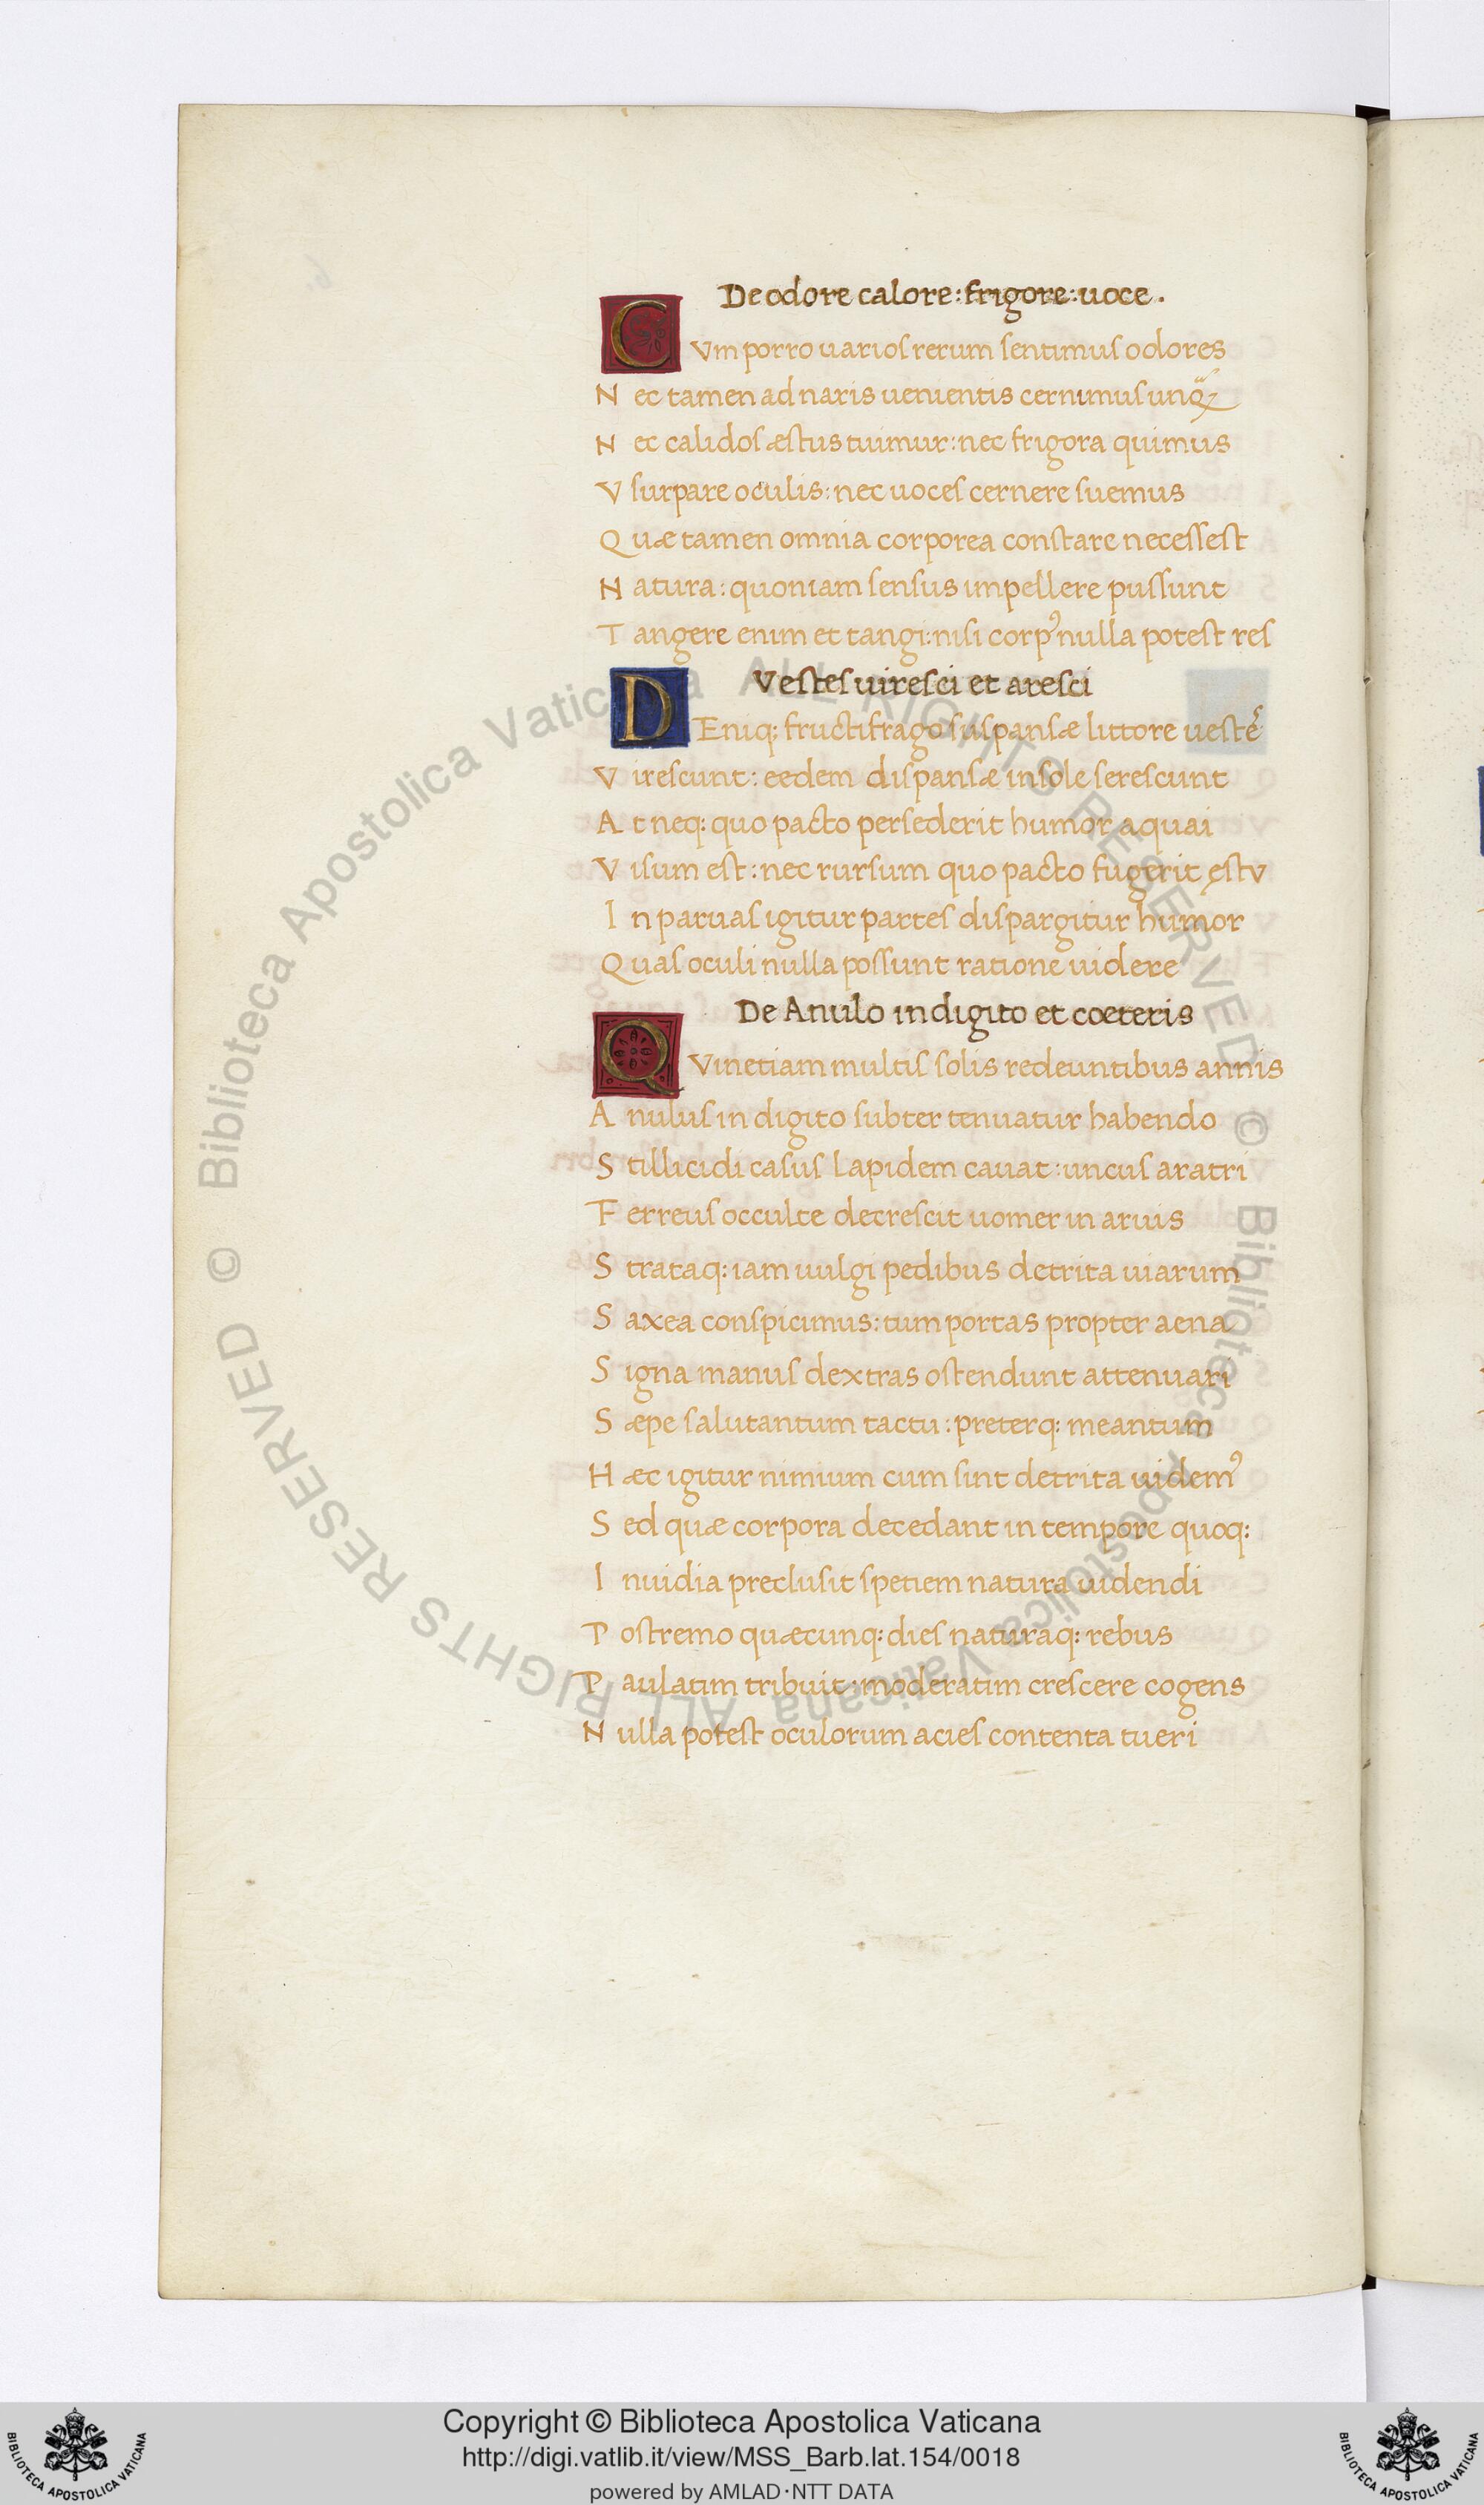 De odore calore: frigore: uoce.
CVm porro uarios rerum sentimus odores
Nec tamen ad naris uenientis cernimus unq̃
Nec calidos æstus tuimur: nec frigora quimus
Vsurpare oculis: nec uoces cernere suemus
Quæ tamen omnia corporea constare necessest
Natura: quoniam sensus impellere pussunt
Tangere enim et tangi: nisi corpꝰ nulla potest res
Vestes uiresci et aresci
DEniq; fructifrago suspansæ littore uestes
Virescunt: eedem dispansæ in sole serescunt
At neq; quo pacto persederit humor aquai
Visum est: nec rursum quo pacto fugerit ęstv
In paruas igitur partes dispargitur humor
Quas oculi nulla possunt ratione uidere
De Anulo in digito et cœteris
QVinetiam multis solis redeuntibus annis
Anulus in digito subter tenuatur habendo
Stillicidi casus lapidem cauat: uncus aratri
Ferreus occulte decrescit uomer in aruis
Strataq; iam uulgi pedibus detrita uiarum
Saxea conspicimus: tum portas propter aena
Signa manus dextras ostendunt attenuari
Sæpe salutantum tactu: preterq; meantum
Hæc igitur nimium cum sint detrita uidemꝰ
Sed quæ corpora decedant in tempore quoq;
Inuidia preclusit spetiem natura uidendi
Postremo quæcunq; dies naturaq; rebus
Paulatim tribuit: moderatim crescere cogens
Nulla potest oculorum acies contenta tueri
© Biblioteca Apostolica Vaticana ALL RIGHTS RESERVED © Biblioteca Apostolica Vaticana ALL RIGHTS RESERVED
Copyright © Biblioteca Apostolica Vaticana
http://digi.vatlib.it/view/MSS_Barb.lat.154/0018
powered by AMLAD·NTT DATA
BIBLIOTECA APOSTOLICA VATICANA
BIBLIOTECA APOSTOLICA VATICANA